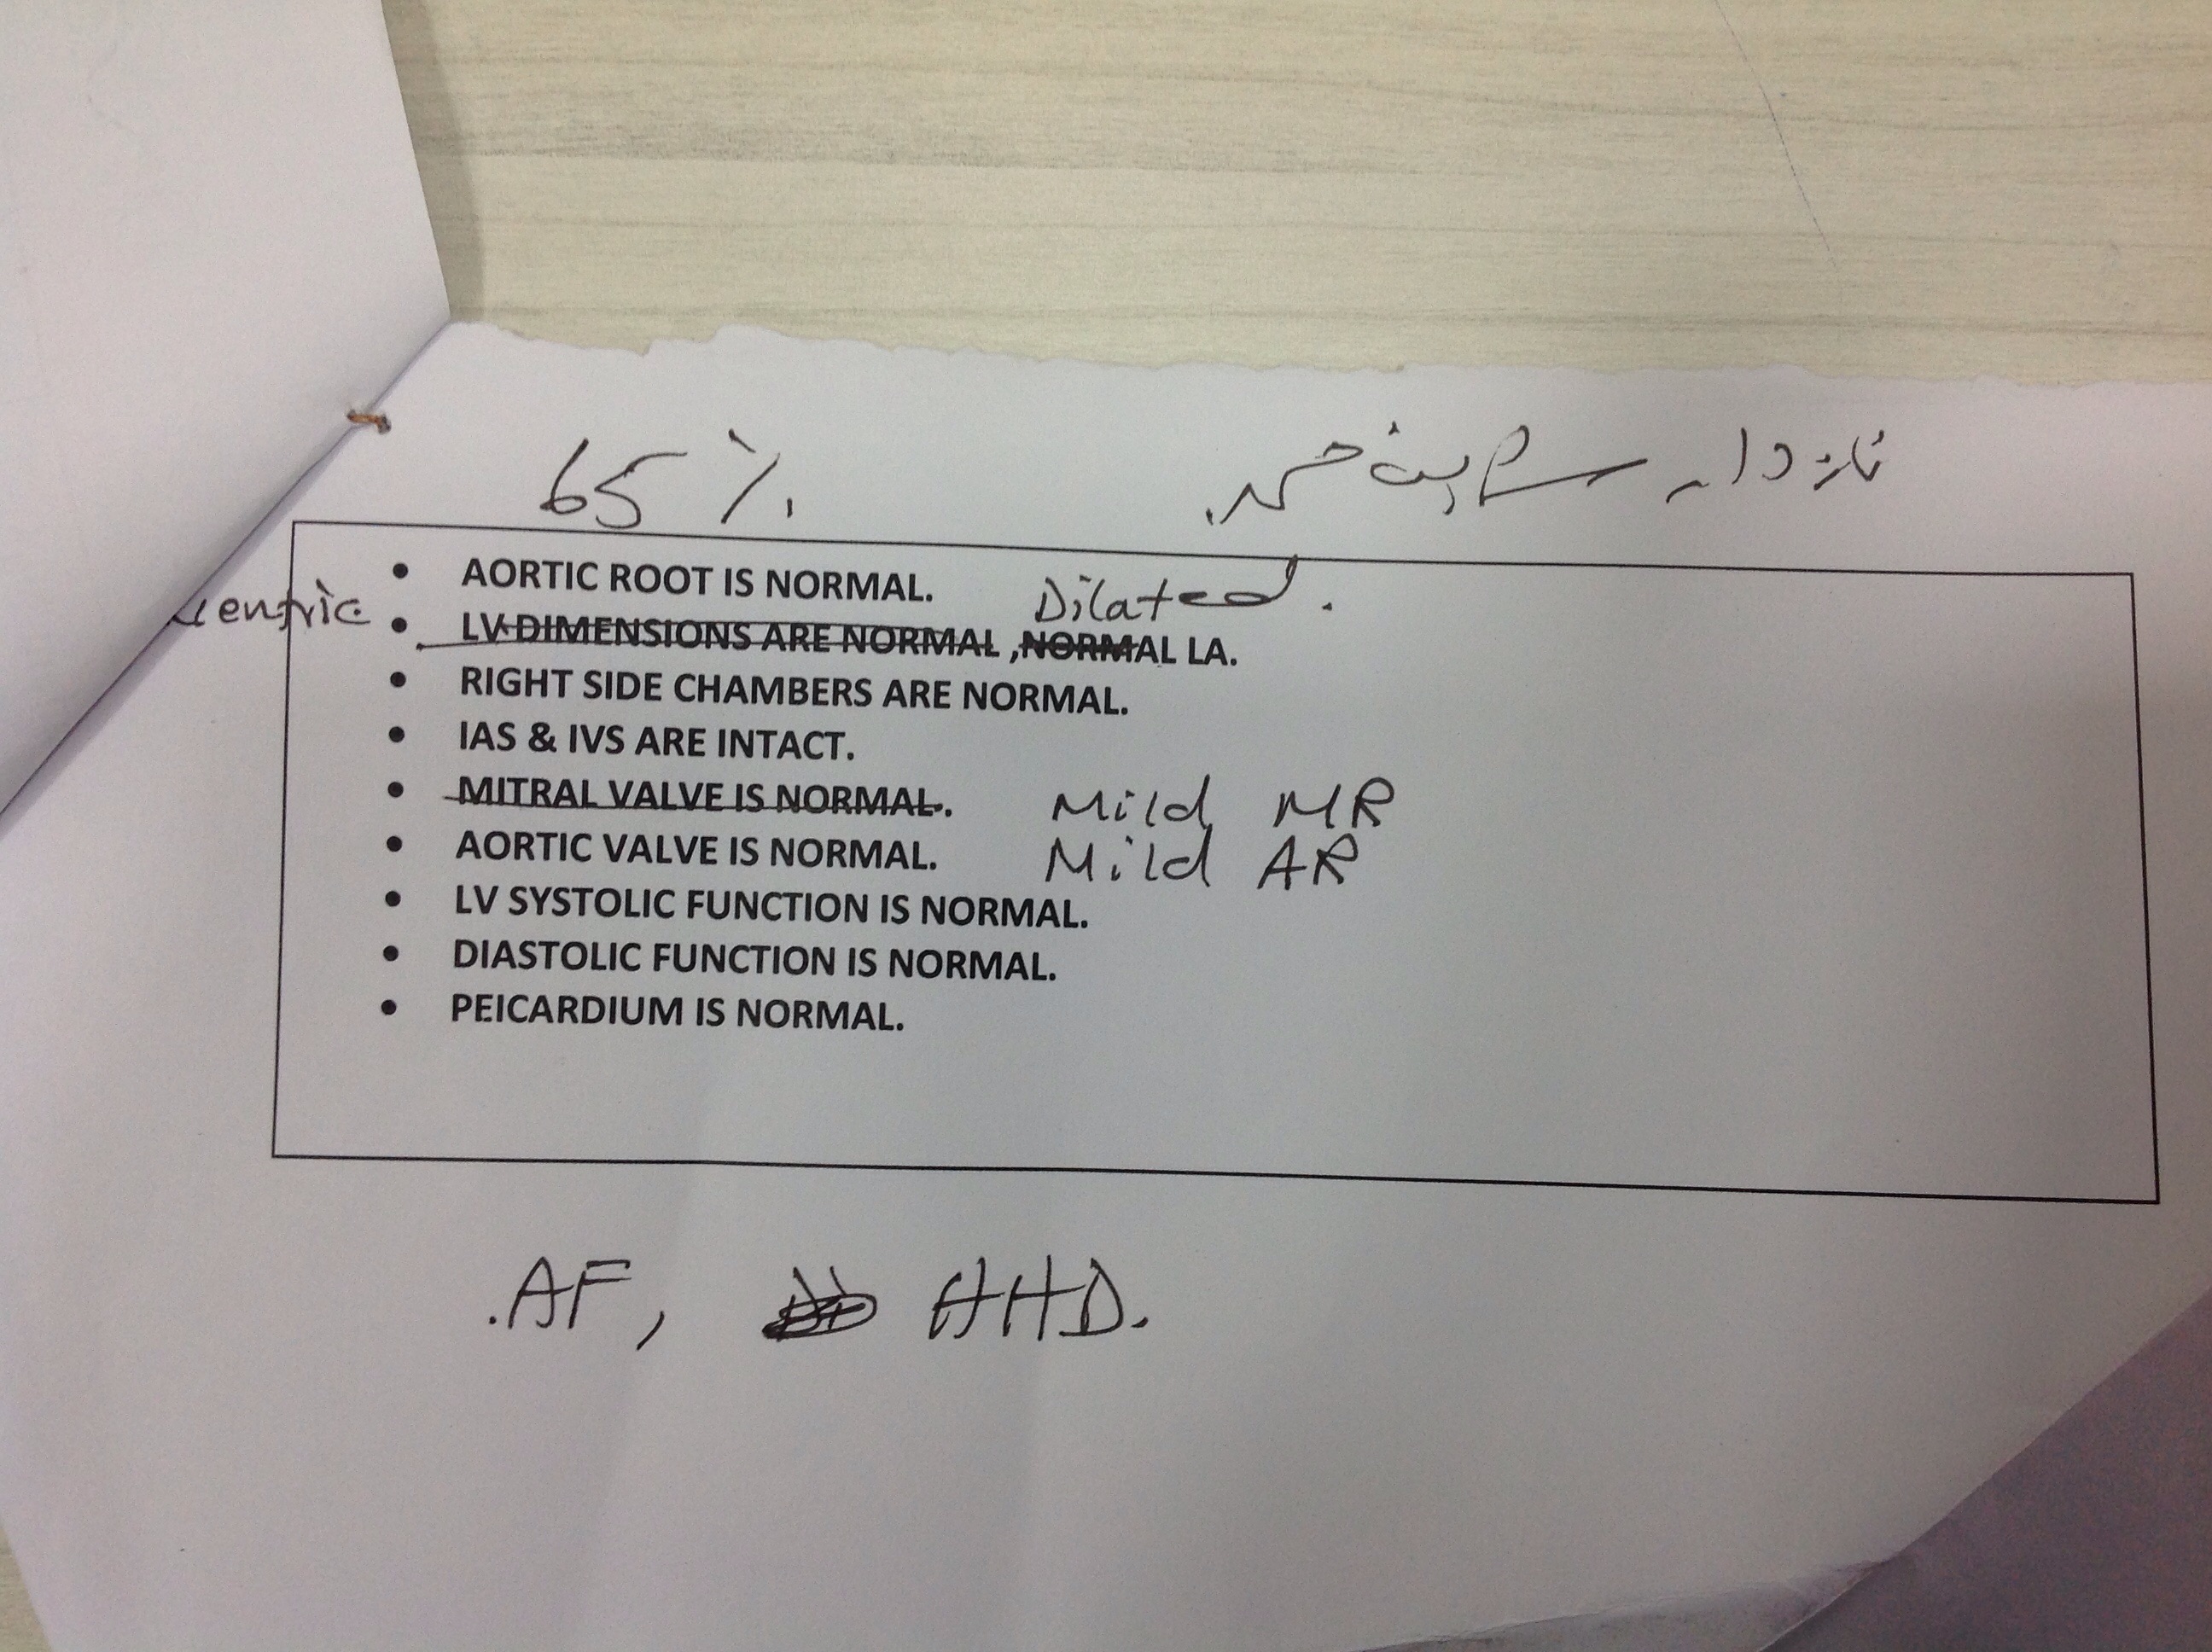 65 %
AORTIC ROOT IS NORMAL. Dilated.
centric
LV DIMENSIONS ARE NORMAL ,NORMAL LA.
RIGHT SIDE CHAMBERS ARE NORMAL.
IAS & IVS ARE INTACT.
MITRAL VALVE IS NORMAL. Mild MR
AORTIC VALVE IS NORMAL. Mild AR
LV SYSTOLIC FUNCTION IS NORMAL.
DIASTOLIC FUNCTION IS NORMAL.
PEICARDIUM IS NORMAL.
.AF, HHD.